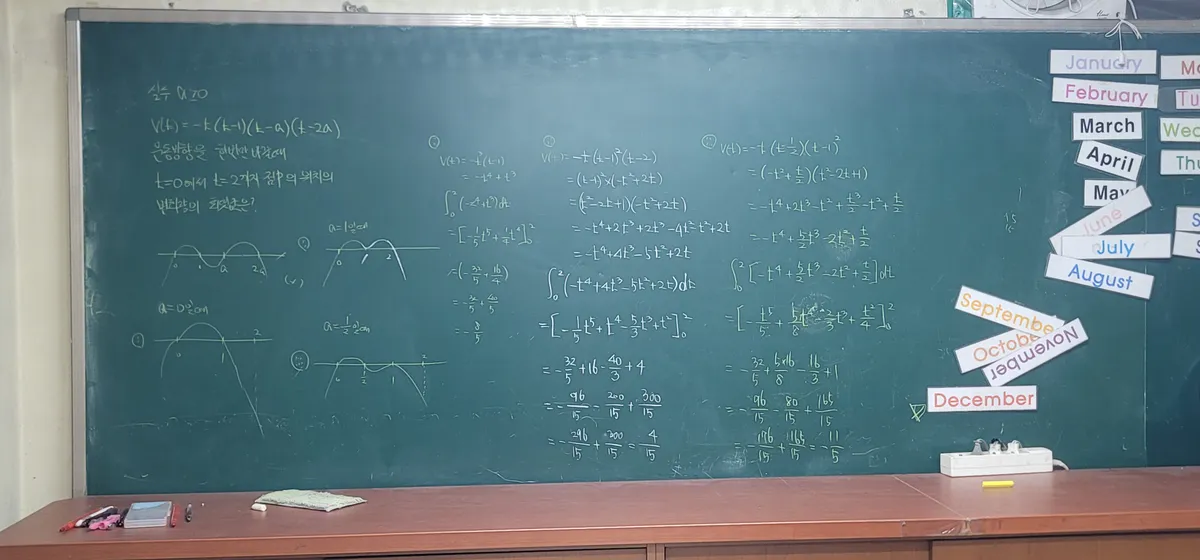 실수 a≥0
v(t)=-t(t-1)(t-a)(t-2a)
운동방향을 한번만 바꿀때
t=0에서 t=2까지 점P의 위치의
변화량의 최댓값은?
0
a
2a
(x)
a=1일때
0
2
a=0일때
0
1
2
a=1/2일때
0
1/2
1
2
v(t)=-t³(t-1)
=-t⁴+t³
∫₀²(-t⁴+t³)dt
=[-1/5t⁵+1/4t⁴]₀²
=(-32/5+16/4)
=-32/5+40/5
=-8/5
v(t)=-t(t-1)²(t-2)
=(t-1)²×(-t²+2t)
=(t²-2t+1)(-t²+2t)
=-t⁴+2t³+2t³-4t²-t²+2t
=-t⁴+4t³-5t²+2t
∫₀²(-t⁴+4t³-5t²+2t)dt
=[-1/5t⁵+t⁴-5/3t³+t²]₀²
=-32/5+16-40/3+4
=-96/15-200/15+300/15
=-296/15+300/15=4/15
v(t)=-t(t-1/2)(t-1)²
=(-t²+t/2)(t²-2t+1)
=-t⁴+2t³-t²+t³/2-t²+t/2
=-t⁴+5/2t³-2t²+t/2
∫₀²[-t⁴+5/2t³-2t²+t/2]dt
=[-t⁵/5+5/8t⁴-2/3t³+t²/4]₀²
=-32/5+5×16/8-16/3+1
=-96/15-80/15+165/15
=-176/15+165/15=-11/15
January
February
March
April
May
June
July
August
September
October
November
December